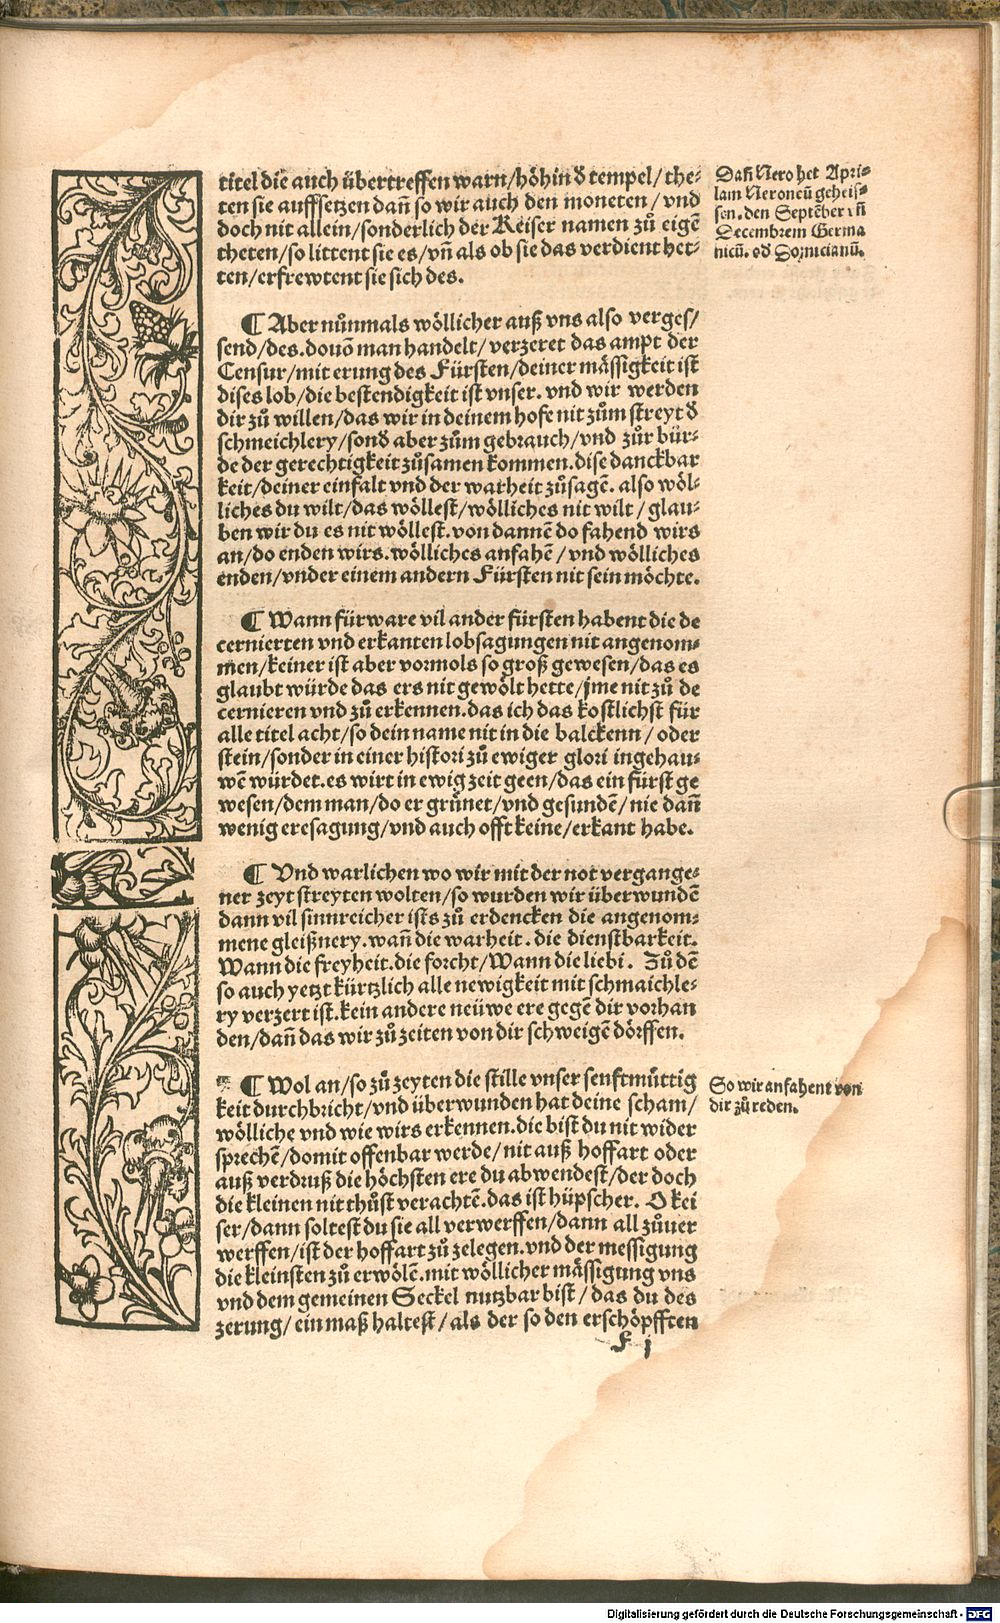 titel die auch übertreffen warn/höhin d̕ tempel/ the⸗
ten sie auffsetzen dañ so wir auch den moneten / vnd
doch nit allein/sonderlich der Keiser namen zů eigẽ
theten/so littent sie es/vñ als ob sie das verdient het⸗
ten/erfrewtent sie sich des.
Dañ Nero het Apri⸗
lam Neroneũ geheis⸗
sen. den Septẽber vñ
Decembrem Germa
nicũ. od Domicianũ.
¶ Aber nůnmals wöllicher auß vns also verges/
send/des. douõ man handelt/ verzeret das ampt der
Censur/mit erung des Fürsten/deiner mässigkeit ist
dises lob/die bestendigkeit ist vnser. vnd wir werden
dir zů willen/das wir in deinem hofe nit zům streyt d̕
schmeichlery/sond̕ aber zům gebrauch/vnd zůr bür⸗
de der gerechtigkeit zůsamen kommen.dise danckbar
keit/deiner einfalt vnd der warheit zůsagẽ. also wöl⸗
liches du wilt/das wöllest/wölliches nit wilt / glau⸗
ben wir du es nit wöllest.von dannẽ do fahend wirs
an/do enden wirs.wölliches anfahẽ / vnd wölliches
enden/vnder einem andern Fürsten nit sein möchte.
¶ Wann fürware vil ander fürsten habent die de
cernierten vnd erkanten lobsagungen nit angenom⸗
men/keiner ist aber vormols so groß gewesen/das es
glaubt würde das ers nit gewölt hette/jme nit zů de
cernieren vnd zů erkennen.das ich das kostlichst für
alle titel acht/so dein name nit in die balckenn/ oder
stein/sonder in einer histori zů ewiger glori ingehau⸗
wẽ würdet.es wirt in ewig zeit geen/das ein fürst ge
wesen/dem man/do er grünet/vnd gesundẽ/ nie dañ
wenig eresagung/vnd auch offt keine/erkant habe.
¶ Vnd warlichen wo wir mit der not vergange⸗
ner zeyt streyten wolten/so wurden wir überwundẽ
dann vil sinnreicher ists zů erdencken die angenom⸗
mene gleißnery.wañ die warheit. die dienstbarkeit.
Wann die freyheit.die forcht/Wann die liebi. Zů dẽ
so auch yetzt kürtzlich alle newigkeit mit schmaichle⸗
ry verzert ist.kein andere neüwe ere gegẽ dir vorhan
den/dañ das wir zů zeiten von dir schweigẽ dörffen.
¶ Wol an/so zů zeyten die stille vnser senftmüttig
keit durchbricht/vnd überwunden hat deine scham/
wölliche vnd wie wirs erkennen.die bist du nit wider
sprechẽ/domit offenbar werde/nit auß hoffart oder
auß verdruß die höchsten ere du abwendest/der doch
die kleinen nit thůst verachtẽ.das ist hüpscher. O kei
ser/dann soltest du sie all verwerffen/dann all zůuer
werffen/ist der hoffart zů zelegen.vnd der messigung
die kleinsten zů erwölẽ.mit wöllicher mässigung vns
vnd dem gemeinen Seckel nutzbar bist/ das du des
zerung/ ein maß haltest/ als der so den erschöpfften
So wir anfahent von
dir zů reden.
F j
Digitalisierung gefördert durch die Deutsche Forschungsgemeinschaft - DFG